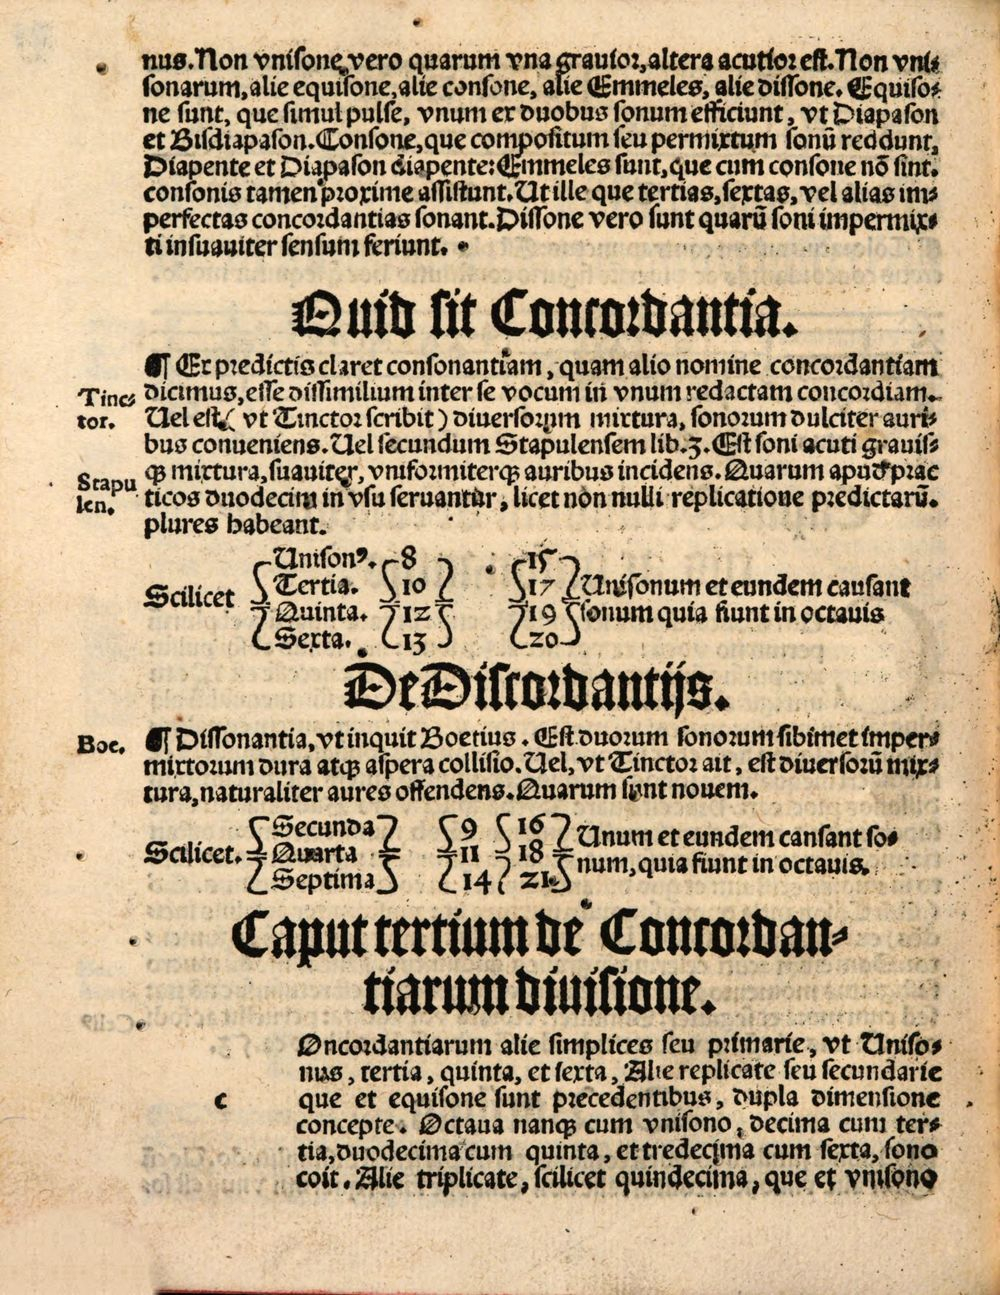 nus. Non vnisone vero quarum vna grauior, altera acutior est. Non vni-
sonarum, alie equisone, alie consone, alie Emmeles, alie dissone. Equiso-
ne sunt, que simul pulse, vnum ex duobus sonum efficiunt, vt Diapason
et Bisdiapason. Consone, que compositum seu permixtum sonū reddunt,
Diapente et Diapason diapente: Emmeles sunt, que cum consone nō sint.
consonis tamen proxime assistunt. Ut ille que tertias, sextas, vel alias im-
perfectas concordantias sonant. Dissone vero sunt quarū soni impermix-
ti insuauiter sensum feriunt.
Quid sit Concordantia.
¶ Ex predictis claret consonantiam, quam alio nomine concordantiam
Tinc-
tor.
dicimus, esse dissimilium inter se vocum in vnum redactam concordiam.
Uel est ( vt Tinctor scribit ) diuersorum mixtura, sonorum dulciter auri-
bus conueniens. Uel secundum Stapulensem lib. 3. Est soni acuti grauis-
Stapu
len.
qȝ mixtura, suauiter, vniformiterqȝ auribus incidens. Quarum apud prac
ticos duodecim in vsu seruantur, licet non nulli replicatione predictarū.
plures habeant.
Scilicet
Unisonꝰ. 8 15
Tertia. 10 17 Unisonum et eundem causant
Quinta. 12 19 sonum quia fiunt in octauis
Sexta. 13 20
De Discordantijs.
Boe.
¶ Dissonantia, vt inquit Boetius. Est duorum sonorum sibimet imper-
mixtorum dura atqȝ aspera collisio. Uel, vt Tinctor ait, est diuersorū mix-
tura, naturaliter aures offendens. Quarum sunt nouem.
Scilicet.
Secunda 9 16 Unum et eundem cansant so-
Quarta 11 18 num, quia fiunt in octauis.
Septima 14 21.
Caput tertium de Concordan-
tiarum diuisione.
Oncordantiarum alie simplices seu primarie, vt Uniso-
nus, tertia, quinta, et sexta, Alie replicate seu secundarie
c
que et equisone sunt precedentibus, dupla dimensione
concepte. Octaua nanqȝ cum vnisono, decima cum ter-
tia, duodecima cum quinta, et tredecima cum sexta, sono
coit. Alie triplicate, scilicet quindecima, que et vnisono